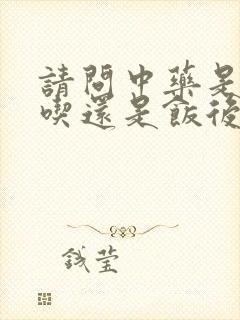 請問中藥是
喫還是飯後
錢瑩